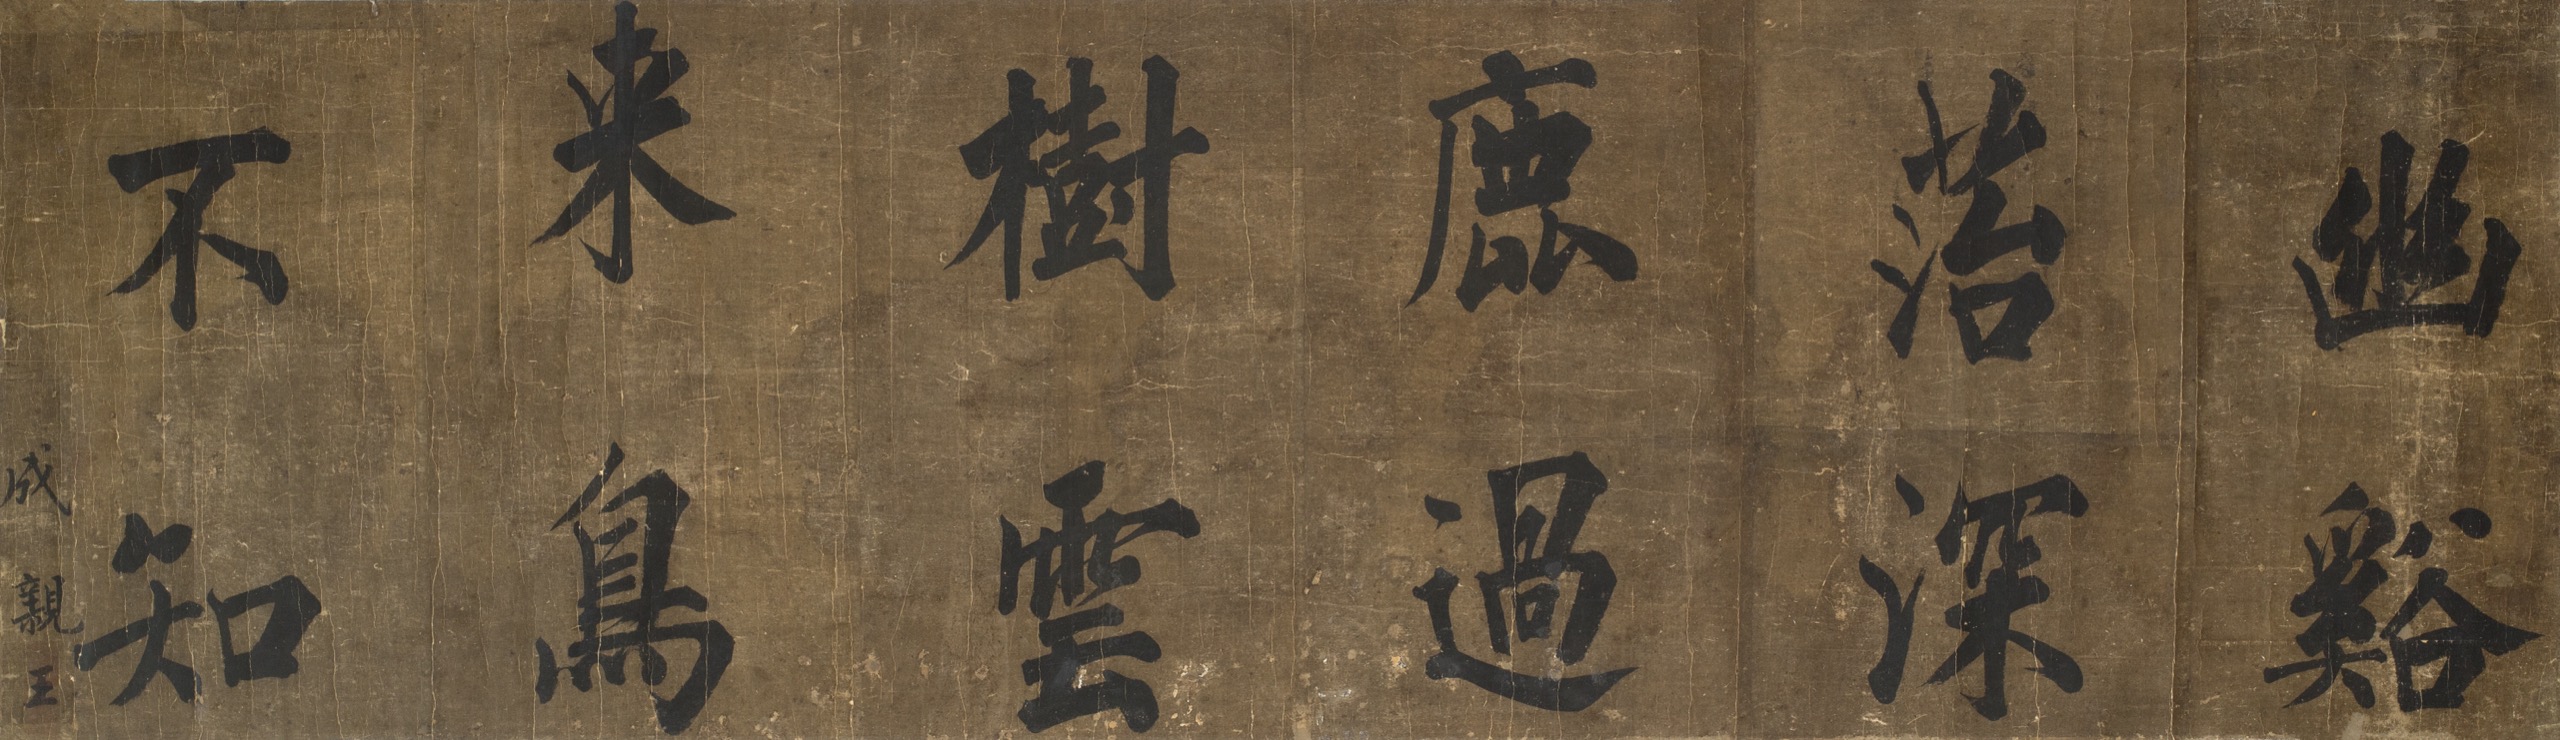 幽谿
苔深
鹿過
樹雲
来鳥
不知
成親王